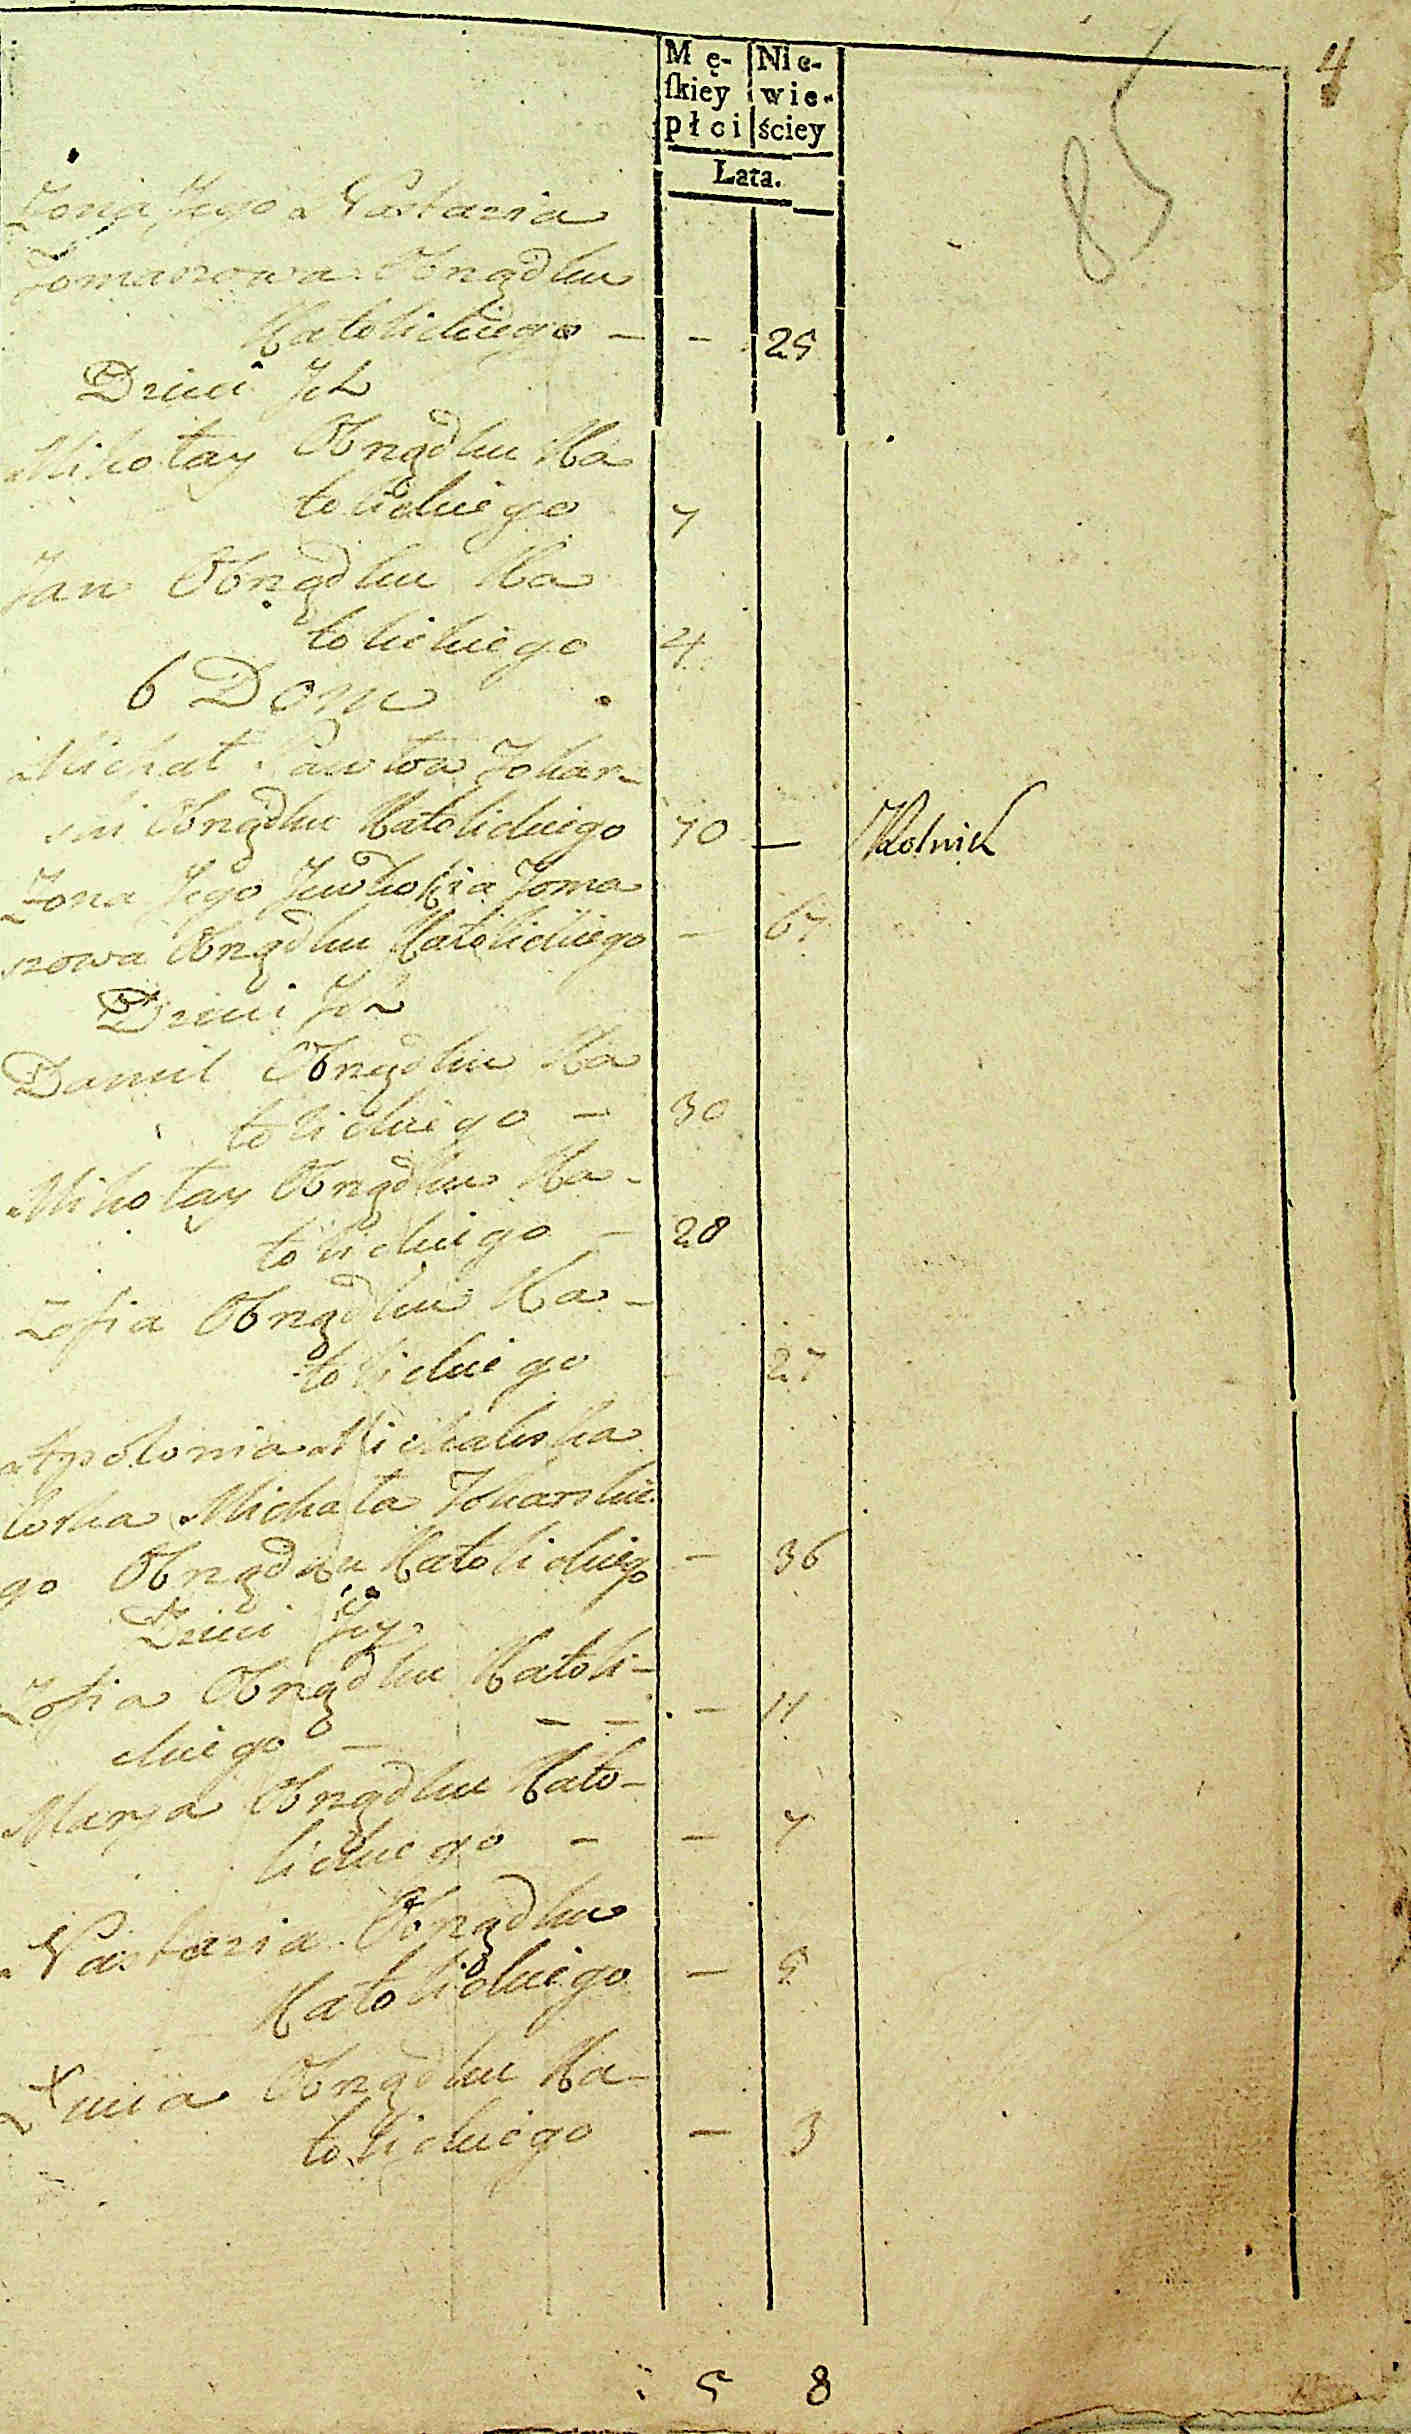 4
85
Mę- Nie-
ſkiey wie-
płci ściey
Lata.
Zona Jego Nastazia
Tomaszowa Obrządku
Katolickiego — - 25
Dzieci Ich
Mikołay Obrządku Ka
tolickiego 7
Jan Obrządku Ka
tolickiego 4
6 Dom
Michał Pawła Tokar-
ski Obrządku Katolickiego 70 — Rolnik
Zona Jego Toma
szowa Obrządku Katolickiego - 67
Dzieci Ich
Daniel Obrządku Ka
tolickiego - 30
Mikołay Obrządku Ka-
tolickiego - 28
Zofia Obrządku Ka-
tolickiego 27
Apolonia Michalska
Corka Michała Tokarskie
go Obrządku Katolickiego - 36
Dzieci Jey
Zofia Obrządku Katoli-
ckiego — — — - 11
Marya Obrządku Kato-
lickiego - - 7
Nastazia Obrządku
Katolickiego — 5
Obrządku Ka-
tolickiego — 3
5 8